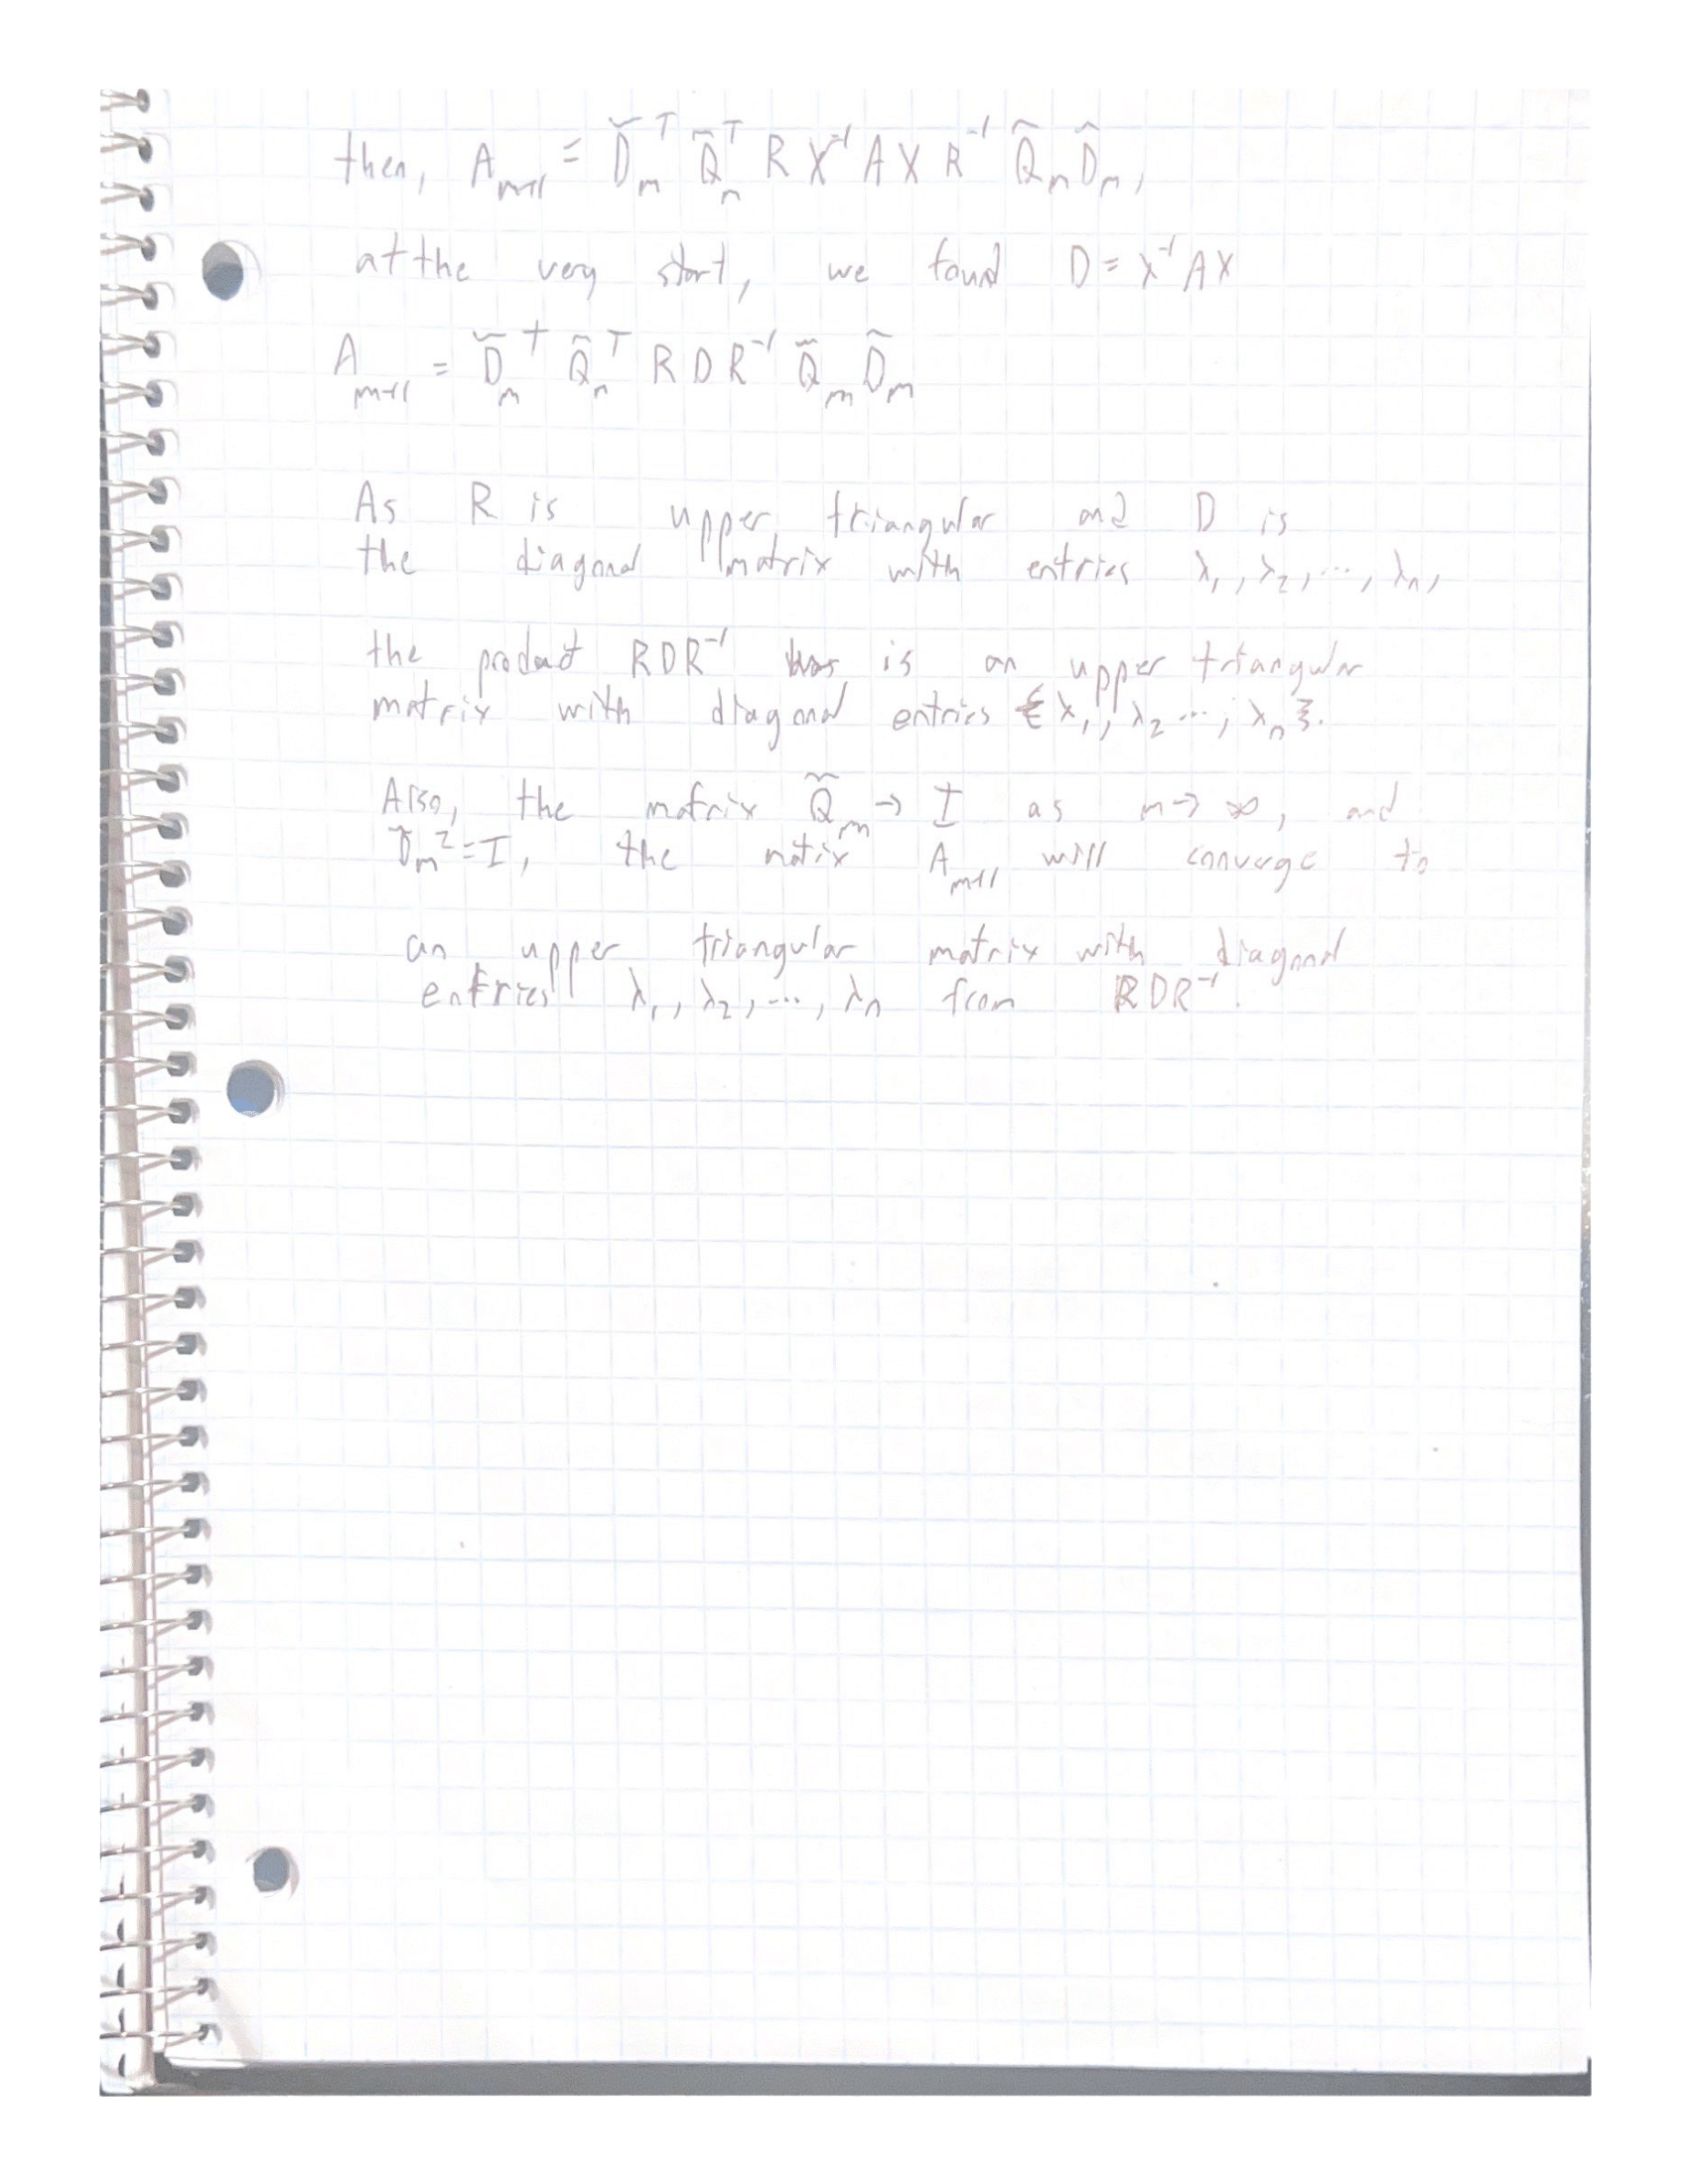 then, A_{m+1} = D̃_m^T Q̃_n^T R X^{-1} A X R^{-1} Q̃_m D̃_m,
at the very start, we found D = X^{-1} A X
A_{m+1} = D̃_m^T Q̃_n^T R D R^{-1} Q̃_m D̃_m
As R is upper triangular and D is
the diagonal matrix with entries λ_1, λ_2, ..., λ_n,
the product RDR^{-1} is an upper triangular
matrix with diagonal entries {λ_1, λ_2 ..., λ_n}.
Also, the matrix Q̃_m → I as m → ∞, and
D̃_m^2 = I, the matix A_{m+1} will converge to
an upper triangular matrix with diagonal
entries λ_1, λ_2, ..., λ_n from RDR^{-1}.